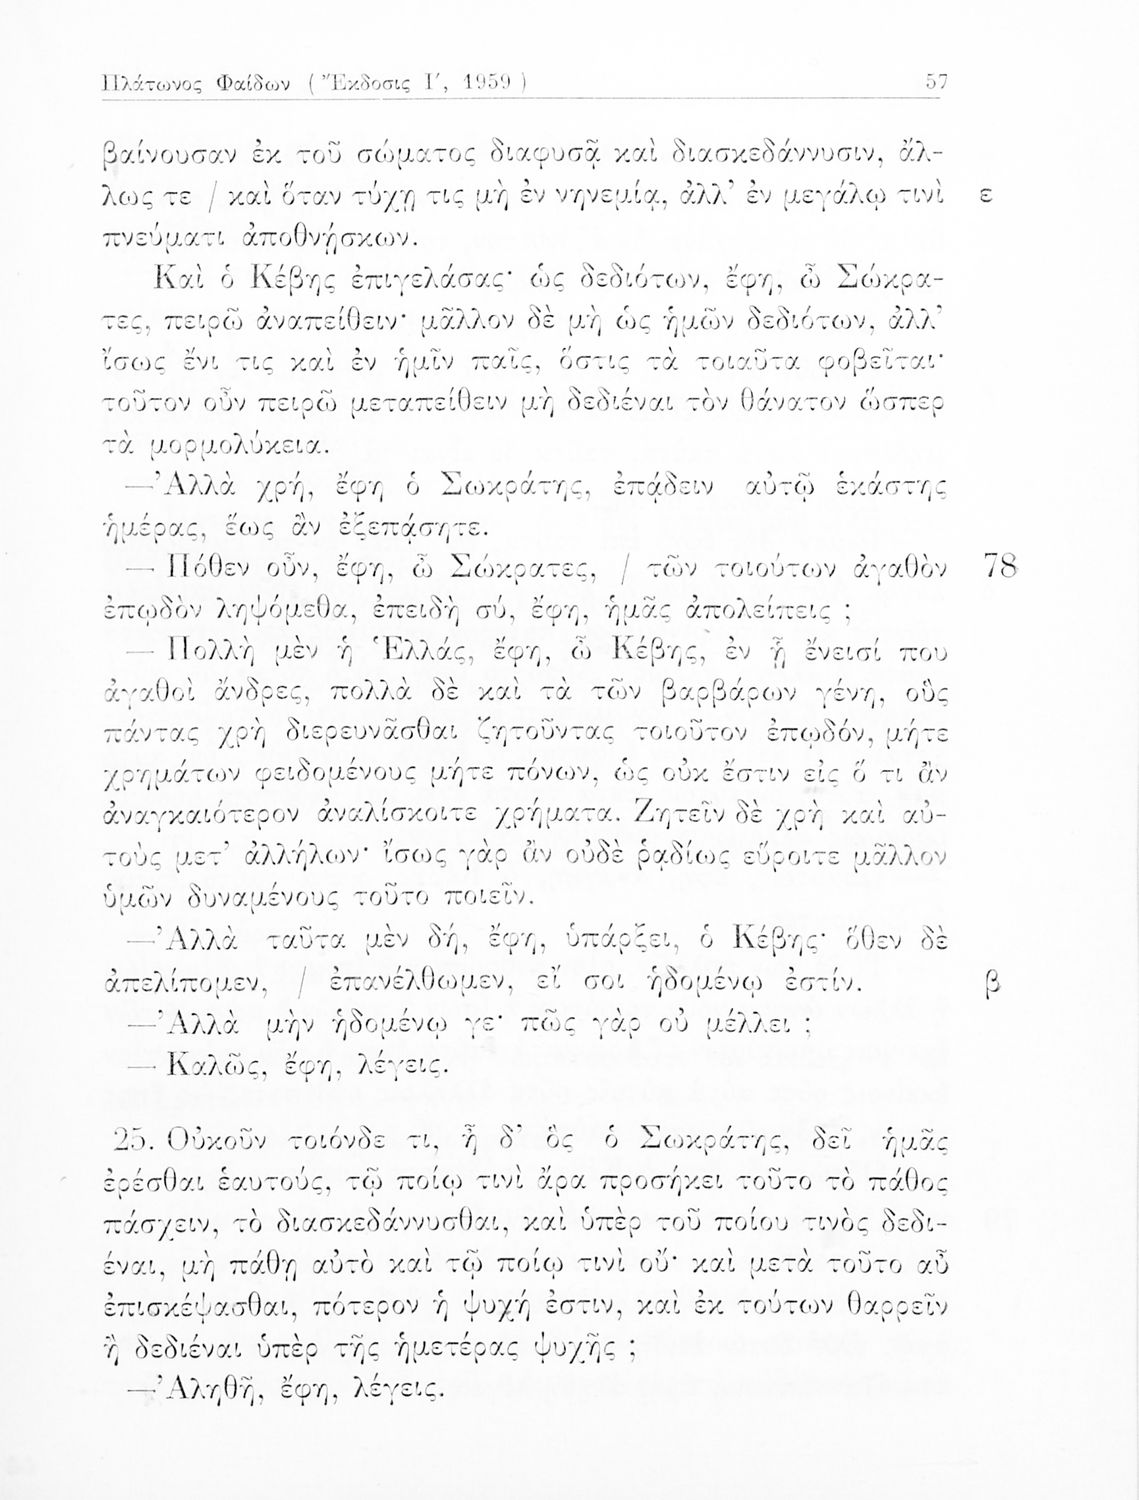 Πλάτωνος Φαίδων ( Ἔκδοσις Ι΄, 1959 ) 57
βαίνουσαν ἐκ τοῦ σώματος διαφυσᾷ καὶ διασκεδάννυσιν, ἄλ-
λως τε / καὶ ὅταν τύχῃ τις μὴ ἐν νηνεμίᾳ, ἀλλ’ ἐν μεγάλῳ τινὶ ε
πνεύματι ἀποθνῄσκων.
Καὶ ὁ Κέβης ἐπιγελάσας· ὡς δεδιότων, ἔφη, ὦ Σώκρα-
τες, πειρῶ ἀναπείθειν· μᾶλλον δὲ μὴ ὡς ἡμῶν δεδιότων, ἀλλ’
ἴσως ἔνι τις καὶ ἐν ἡμῖν παῖς, ὅστις τὰ τοιαῦτα φοβεῖται·
τοῦτον οὖν πειρῶ μεταπείθειν μὴ δεδιέναι τὸν θάνατον ὥσπερ
τὰ μορμολύκεια.
—Ἀλλὰ χρή, ἔφη ὁ Σωκράτης, ἐπᾴδειν αὐτῷ ἑκάστης
ἡμέρας, ἕως ἂν ἐξεπᾴσητε.
— Πόθεν οὖν, ἔφη, ὦ Σώκρατες, / τῶν τοιούτων ἀγαθὸν 78
ἐπῳδὸν ληψόμεθα, ἐπειδὴ σύ, ἔφη, ἡμᾶς ἀπολείπεις ;
— Πολλὴ μὲν ἡ Ἑλλάς, ἔφη, ὦ Κέβης, ἐν ᾗ ἔνεισί που
ἀγαθοὶ ἄνδρες, πολλὰ δὲ καὶ τὰ τῶν βαρβάρων γένη, οὓς
πάντας χρὴ διερευνᾶσθαι ζητοῦντας τοιοῦτον ἐπῳδόν, μήτε
χρημάτων φειδομένους μήτε πόνων, ὡς οὐκ ἔστιν εἰς ὅ τι ἂν
ἀναγκαιότερον ἀναλίσκοιτε χρήματα. Ζητεῖν δὲ χρὴ καὶ αὐ-
τοὺς μετ’ ἀλλήλων· ἴσως γὰρ ἂν οὐδὲ ῥᾳδίως εὕροιτε μᾶλλον
ὑμῶν δυναμένους τοῦτο ποιεῖν.
—Ἀλλὰ ταῦτα μὲν δή, ἔφη, ὑπάρξει, ὁ Κέβης· ὅθεν δὲ
ἀπελίπομεν, / ἐπανέλθωμεν, εἴ σοι ἡδομένῳ ἐστίν. β
—Ἀλλὰ μὴν ἡδομένῳ γε· πῶς γὰρ οὐ μέλλει ;
— Καλῶς, ἔφη, λέγεις.
25. Οὐκοῦν τοιόνδε τι, ἦ δ’ ὃς ὁ Σωκράτης, δεῖ ἡμᾶς
ἐρέσθαι ἑαυτούς, τῷ ποίῳ τινὶ ἄρα προσήκει τοῦτο τὸ πάθος
πάσχειν, τὸ διασκεδάννυσθαι, καὶ ὑπὲρ τοῦ ποίου τινὸς δεδι-
έναι, μὴ πάθῃ αὐτὸ καὶ τῷ ποίῳ τινὶ οὔ· καὶ μετὰ τοῦτο αὖ
ἐπισκέψασθαι, πότερον ἡ ψυχή ἐστιν, καὶ ἐκ τούτων θαρρεῖν
ἢ δεδιέναι ὑπὲρ τῆς ἡμετέρας ψυχῆς ;
—Ἀληθῆ, ἔφη, λέγεις.